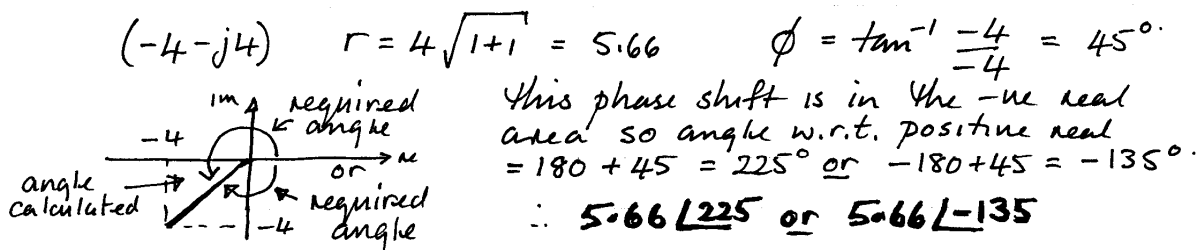 (-4-j4) r = 4√1+1 = 5.66 φ = tan⁻¹ -4/-4 = 45°.
Im required angle
-4
re
or
angle calculated
required angle
-4
this phase shift is in the -ve real
area so angle w.r.t. positive real
= 180 + 45 = 225° or -180+45 = -135°.
∴ 5.66∠225 or 5.66∠-135